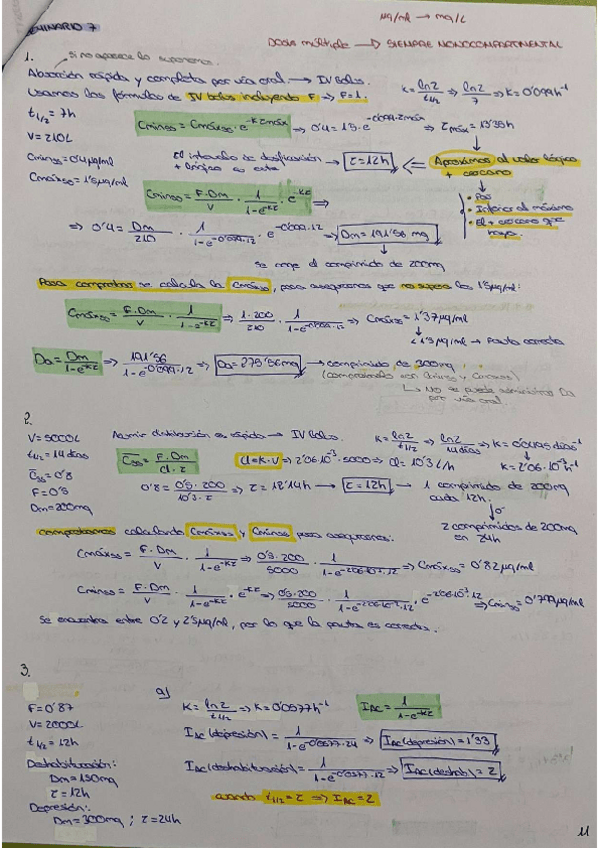 µg/ml → mg/L
SEMINARIO 7
Dosis múltiple → SIEMPRE MONOCOMPARTIMENTAL
1.
Si no aparece lo suponemos.
Absorción rápida y completa por vía oral. → IV Bolus.
Usamos las fórmulas de IV bolus incluyendo F → F=1.
K = ln2/t1/2 ⇒ ln2/7 ⇒ K = 0'099 h⁻¹
t1/2 = 7h
V = 210L
Cminss = 0'4 µg/ml
Cmáxss = 1'5 µg/ml
Cminss = Cmáxss · e^-Kτmáx ⇒ 0'4 = 1'5 · e^-0'099·τmáx ⇒ τmáx = 13'35h
El intervalo de dosificación + lógico es este → τ = 12h ⇐ Aproximamos al valor lógico + cercano
• Par
• Inferior al máximo
• El + cercano que haya.
Cminss = F·Dm/V · 1/1-e^-Kτ · e^-Kτ ⇒
⇒ 0'4 = Dm/210 · 1/1-e^-0'099·12 · e^-0'099·12 ⇒ Dm = 191'56 mg
Se coge el comprimido de 200mg
Para comprobar se calcula la Cmáxss, para asegurarnos que no supera los 1'5µg/ml:
Cmáxss = F·Dm/V · 1/1-e^-Kτ ⇒ 1·200/210 · 1/1-e^-0'099·12 ⇒ Cmáxss = 1'37µg/ml
< 1'5 µg/ml → Pauta correcta
Do = Dm/1-e^-Kτ ⇒ 191'56/1-e^-0'099·12 ⇒ Do = 275'56mg → comprimido de 300mg
(comprobando con Cminss y Cmáxss)
↳ No se puede administrar Do por vía oral.
2.
V = 5000L
t1/2 = 14 días
C̄ss = 0'8
F = 0'5
Dm = 200mg
Asumir distribución es rápida → IV Bolus.
K = ln2/t1/2 ⇒ ln2/14 días ⇒ K = 0'0495 días⁻¹
K = 2'06·10⁻³ h⁻¹
C̄ss = F·Dm/Cl·τ
Cl = K·V ⇒ 2'06·10⁻³·5000 ⇒ Cl = 10'3 L/h
0'8 = 0'5·200/10'3·τ ⇒ τ = 12'14h → τ = 12h → 1 comprimido de 200mg cada 12h.
↓o
2 comprimidos de 200mg en 24h
comprobamos calculando Cmáxss y Cminss para asegurarnos:
Cmáxss = F·Dm/V · 1/1-e^-Kτ ⇒ 0'5·200/5000 · 1/1-e^-2'06·10⁻³·12 ⇒ Cmáxss = 0'82 µg/ml
Cminss = F·Dm/V · 1/1-e^-Kτ · e^-Kτ ⇒ 0'5·200/5000 · 1/1-e^-2'06·10⁻³·12 · e^-2'06·10⁻³·12 ⇒ Cminss = 0'799 µg/ml
Se encuentra entre 0'2 y 2'5µg/ml, por lo que la pauta es correcta.
3.
F = 0'87
V = 2000L
t1/2 = 12h
Deshabituación:
Dm = 150mg
τ = 12h
Depresión:
Dm = 300mg ; τ = 24h
a)
K = ln2/t1/2 ⇒ K = 0'0577h⁻¹
IAC = 1/1-e^-Kτ
IAC (depresión) = 1/1-e^-0'0577·24 ⇒ IAC (depresión) = 1'33
IAC (deshabituación) = 1/1-e^-0'0577·12 ⇒ IAC (deshab) = 2
cuando t1/2 = τ ⇒ IAC = 2